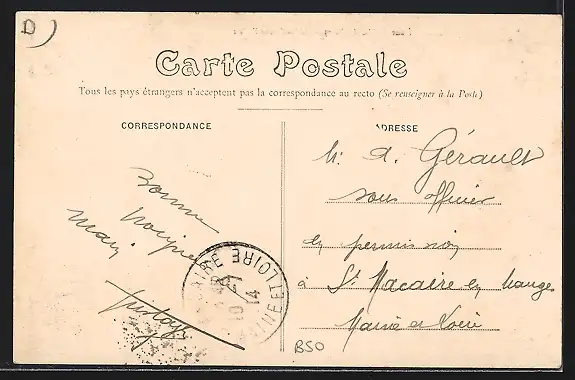 D
Carte Postale
Tous les pays étrangers n'acceptent pas la correspondance au recto (Se renseigner à la Poste)
CORRESPONDANCE
ADRESSE
Bonne
Mais
Gustave
M. A. Gérault
sous officier
en permission
à St Macaire en Mauges
Maine et Loire
MACAIRE
MAINE ET LOIRE
14
B50